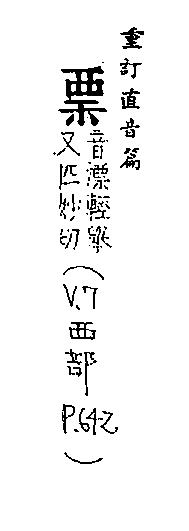 重訂直音篇
票
音漂輕舉
又匹妙切
(V.7西部
P.64-2)